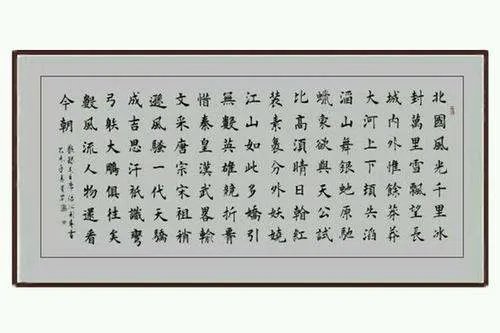 北國風光千里冰
封萬里雪飄望長
城內外惟餘莽莽
大河上下頓失滔
滔山舞銀蛇原馳
蠟象欲與天公試
比高須晴日看紅
裝素裹分外妖嬈
江山如此多嬌引
無數英雄競折腰
惜秦皇漢武略輸
文采唐宗宋祖稍
遜風騷一代天驕
成吉思汗祇識彎
弓射大鵰俱往矣
數風流人物還看
今朝